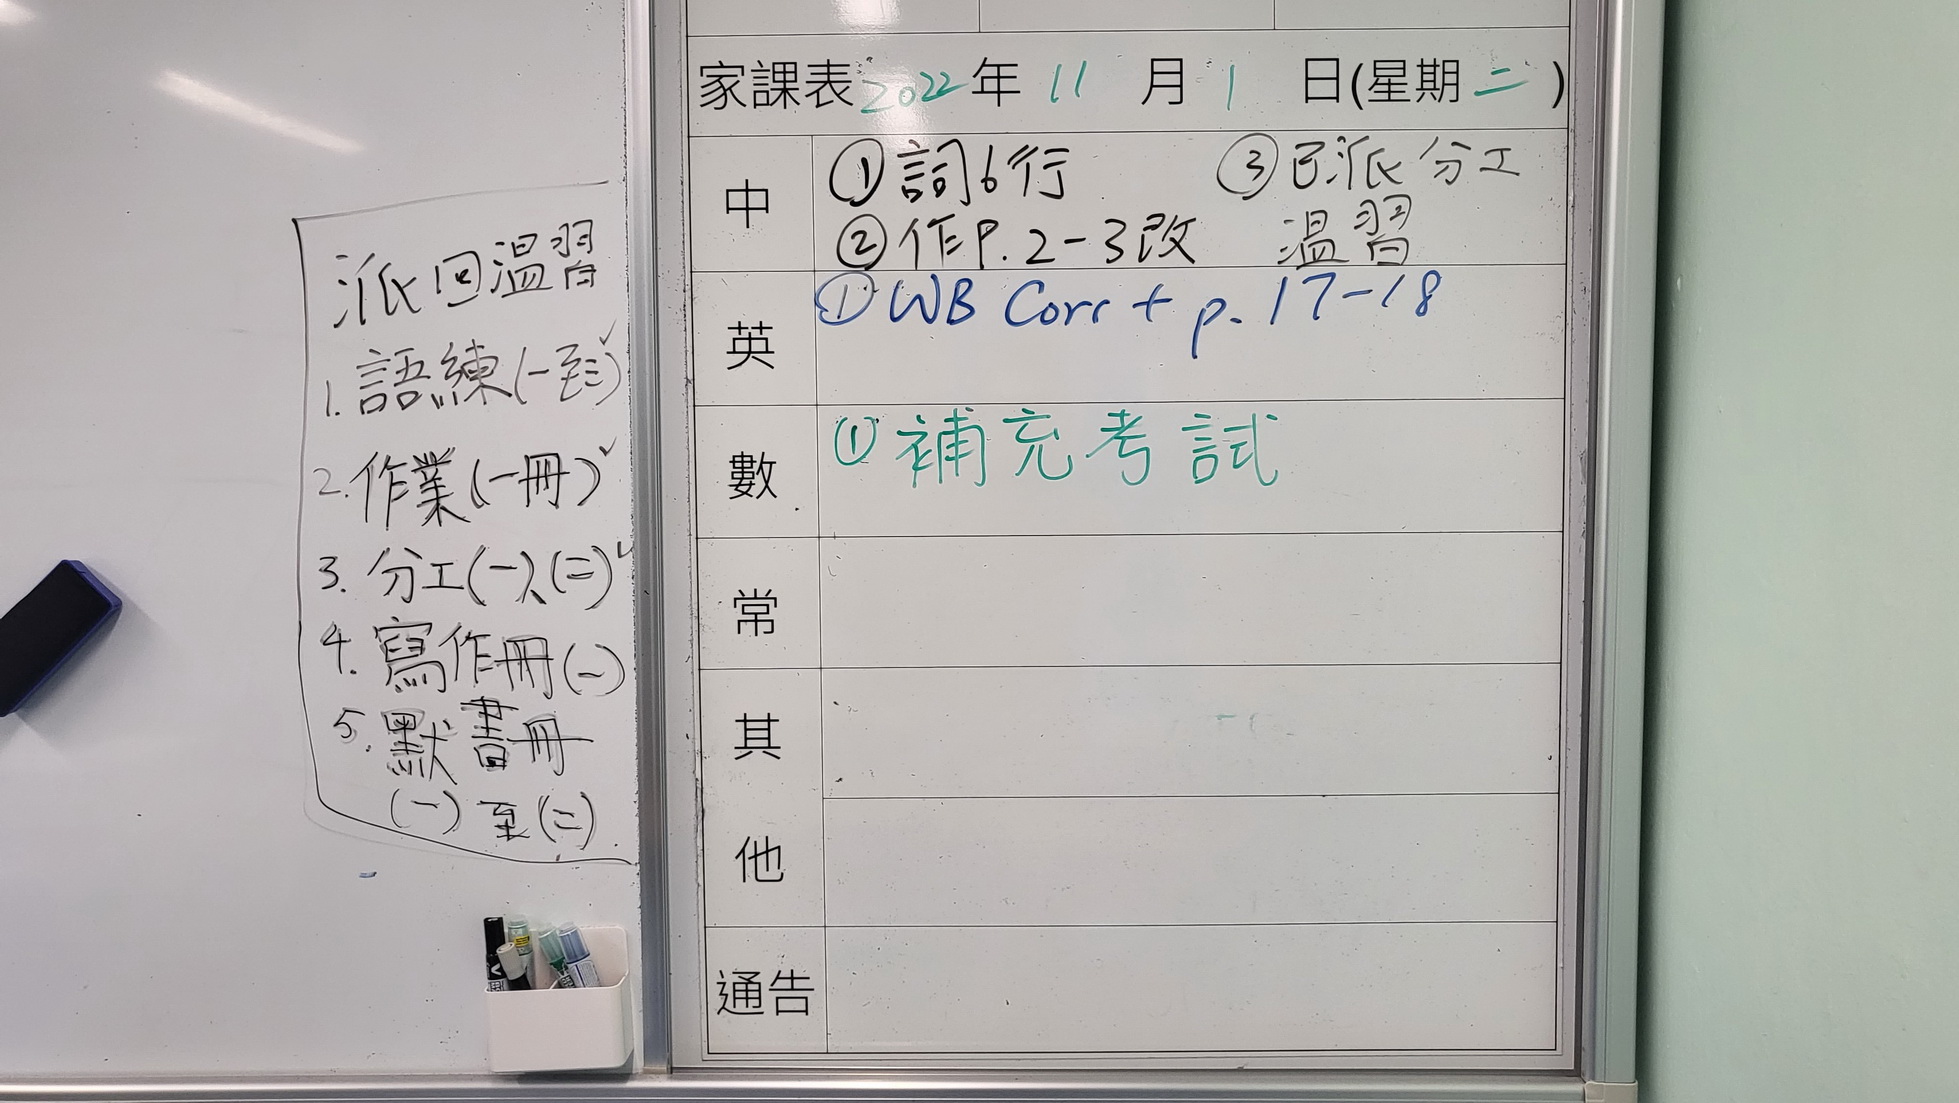 派回溫習
1. 語練(一至三)✓
2. 作業(一冊)✓
3. 分工(一)、(二)✓
4. 寫作冊(一)
5. 默書冊
(一)至(二)
家課表2022年 11 月 1 日(星期二)
中
①詞6行 ③已派分工
②作P.2-3改 溫習
英
①WB Corr + p. 17-18
數
①補充考試
常
其
他
通告